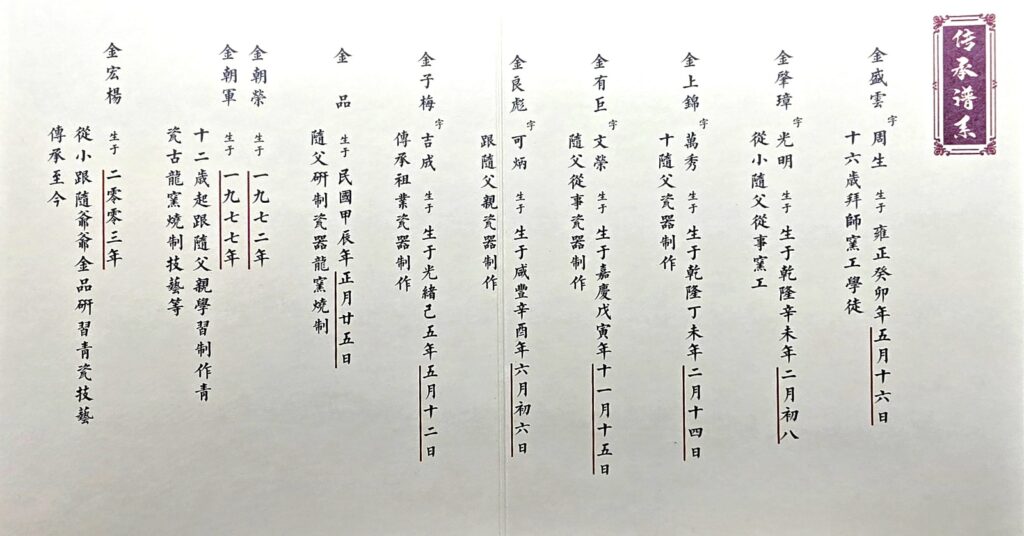 传承谱系
金盛雲 字 周生 生于 雍正癸卯年五月十六日
十六歲拜師窯工學徒
金肇璋 字 光明 生于乾隆辛未年二月初八
從小隨父從事窯工
金上錦 字 萬秀 生于 生于乾隆丁未年二月十四日
十隨父瓷器制作
金有巨 字 文榮 生于 生于嘉慶戊寅年十一月十五日
隨父從事瓷器制作
金良彪 字 可炳 生于 生于咸豐辛酉年六月初六日
跟隨父親瓷器制作
金子梅 字 吉成 生于 生于光緒己五年五月十二日
傳承祖業瓷器制作
金品 生于 民國甲辰年正月廿五日
隨父研制瓷器龍窯燒制
金朝榮 生于 一九七二年
金朝軍 生于 一九七七年
十二歲起跟隨父親學習制作青
瓷古龍窯燒制技藝等
金宏楊 生于 二零零三年
從小跟隨爺爺金品研習青瓷技藝
傳承至今